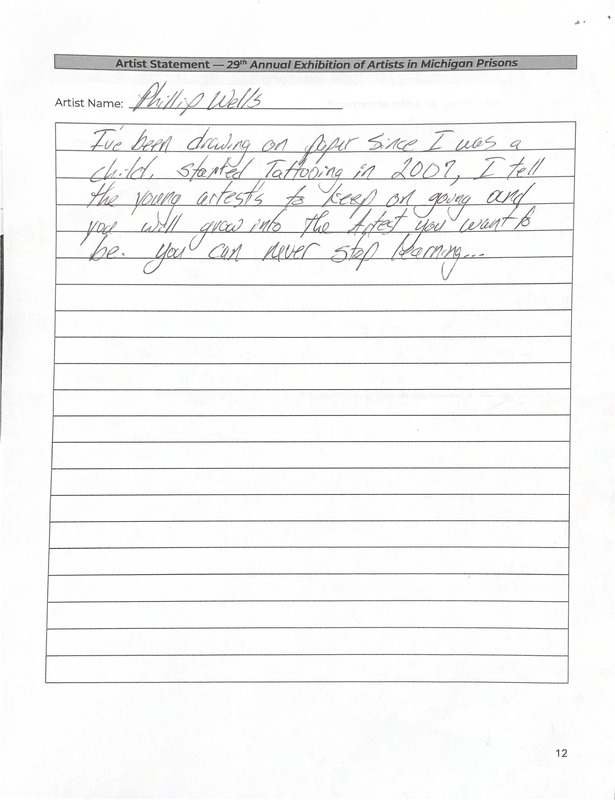 Artist Statement — 29th Annual Exhibition of Artists in Michigan Prisons
Artist Name: Phillip Wells
I've been drawing on paper since I was a
child. Started Tattooing in 2007, I tell
the young artest's to keep on going and
you will grow into the Artest you want to
be. you can never stop learning...
12